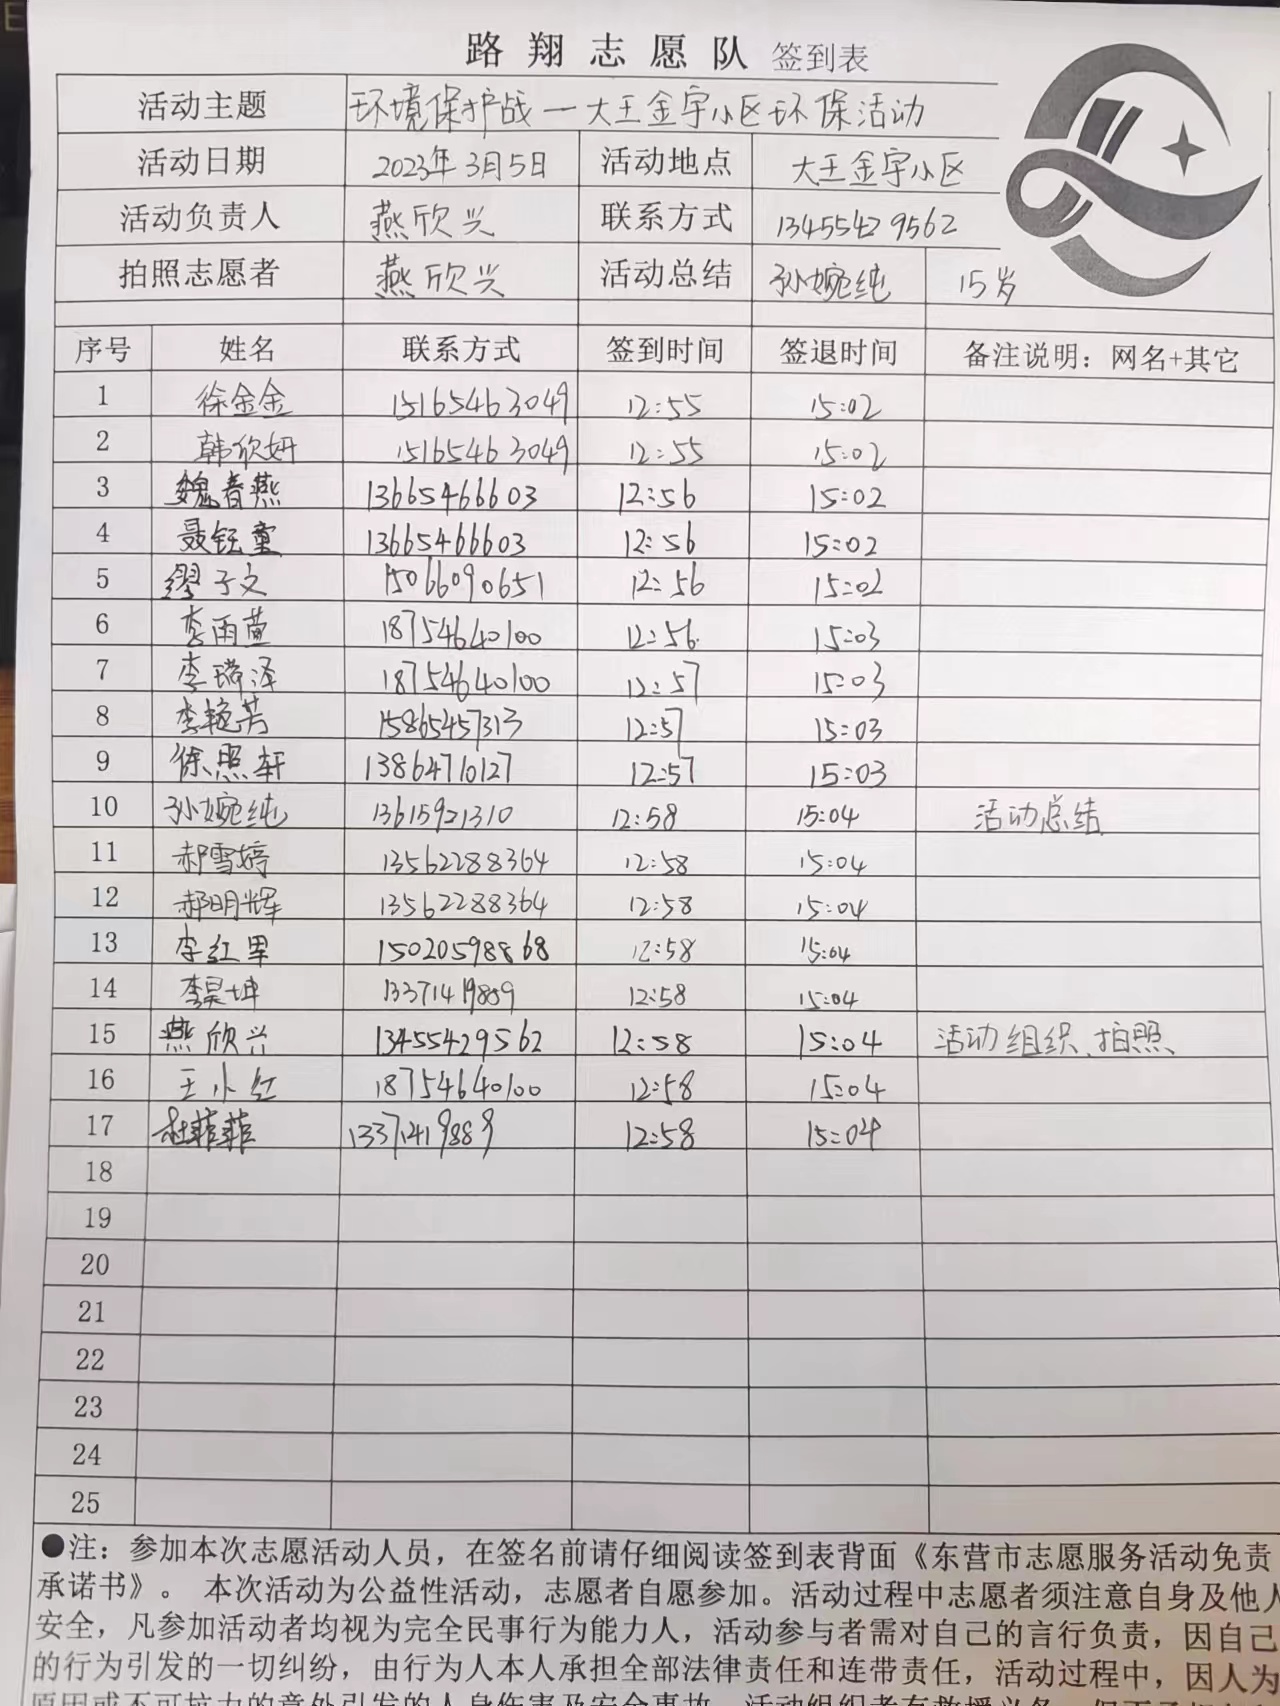 路翔志愿队 签到表
活动主题 环境保护战一大王金宇小区环保活动
活动日期 2023年3月5日 活动地点 大王金宇小区
活动负责人 燕欣兴 联系方式 13455429562
拍照志愿者 燕欣兴 活动总结 孙婉纯 15岁
序号 姓名 联系方式 签到时间 签退时间 备注说明：网名+其它
1 徐金金 15165463049 12:55 15:02
2 韩欣妍 15165463049 12:55 15:02
3 魏春燕 13665466603 12:56 15:02
4 聂钰童 13665466603 12:56 15:02
5 缪子文 15066090651 12:56 15:02
6 李雨萱 18754640100 12:56 15:03
7 李瑞泽 18754640100 12:57 15:03
8 李艳芳 15865457313 12:57 15:03
9 徐照轩 13864710127 12:57 15:03
10 孙婉纯 13615921310 12:58 15:04 活动总结
11 郝雪婷 13562288364 12:58 15:04
12 郝明辉 13562288364 12:58 15:04
13 李红军 15020598868 12:58 15:04
14 李昊坤 13371419889 12:58 15:04
15 燕欣兴 13455429562 12:58 15:04 活动组织、拍照
16 王小红 18754640100 12:58 15:04
17 杜菲菲 13371419889 12:58 15:04
18
19
20
21
22
23
24
25
●注：参加本次志愿活动人员，在签名前请仔细阅读签到表背面《东营市志愿服务活动免责
承诺书》。 本次活动为公益性活动，志愿者自愿参加。活动过程中志愿者须注意自身及他人
安全，凡参加活动者均视为完全民事行为能力人，活动参与者需对自己的言行负责，因自己
的行为引发的一切纠纷，由行为人本人承担全部法律责任和连带责任，活动过程中，因人为
原因或不可抗力的意外引发的人身伤害及安全事故，活动组织者有救援义务，但不承担